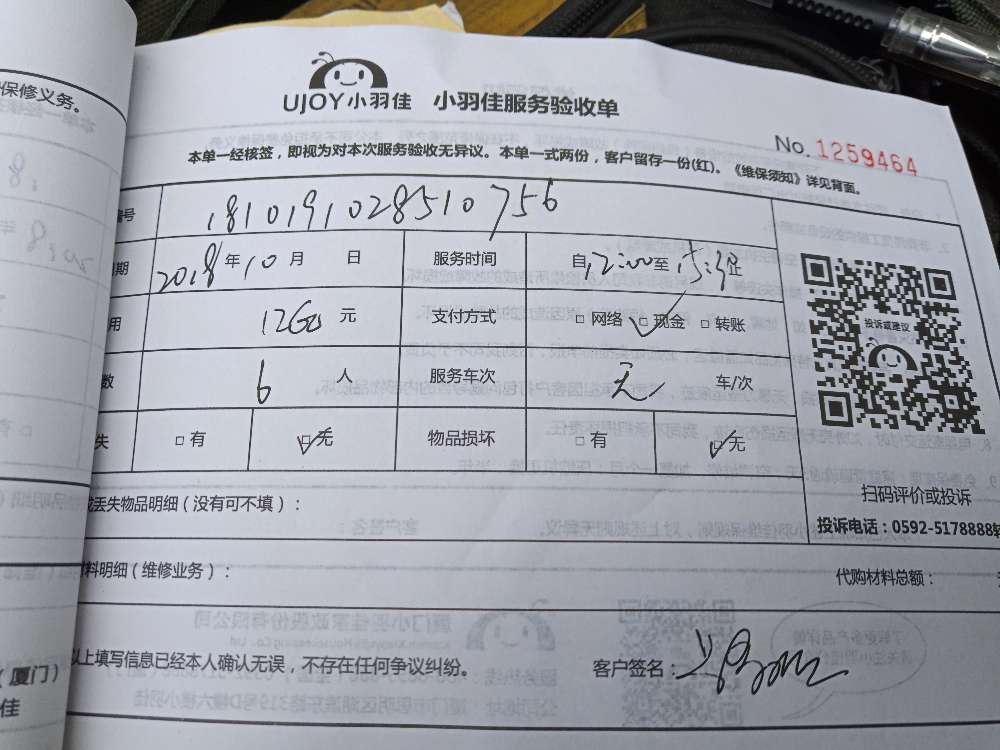 保修义务。
UJOY小羽佳 小羽佳服务验收单
No. 1259464
本单一经核签，即视为对本次服务验收无异议。本单一式两份，客户留存一份(红)。《维保须知》详见背面。
编号 181019102851 0756
期 2018年10月 日 服务时间 自12:00至
用 1260 元 支付方式 □网络 □现金 □转账
投诉或建议
数 6 人 服务车次 无 车/次
失 □有 □无 物品损坏 □有 □无
扫码评价或投诉
或丢失物品明细（没有可不填）：
投诉电话：0592-5178888转
材料明细（维修业务）：
代购材料总额：
以上填写信息已经本人确认无误，不存在任何争议纠纷。 客户签名：
（厦门）
佳